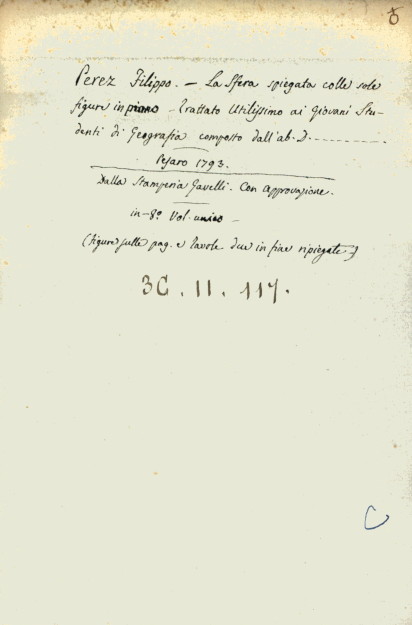 Perez Filippo. — La Sfera spiegata colle sole
figure in piano — Trattato Utilissimo ai Giovani Stu-
denti di Geografia composto dall'ab. D.
Pesaro 1793.
Dalla Stamperia Gavelli. Con approvazione.
in-8º Vol. unico —
(figure sulle pag. e Tavole due in fine ripiegate)
3C. 11. 117.
C